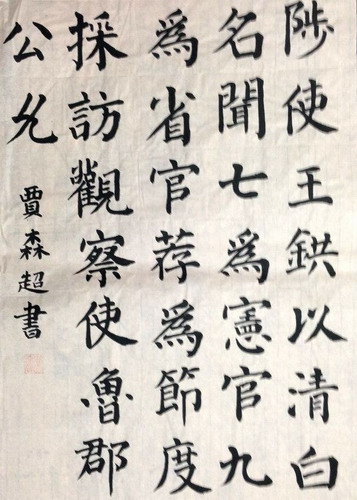 陟使王鉷以清白
名聞七為憲官九
為省官荐為節度
採訪觀察使魯郡
公允
賈森超書